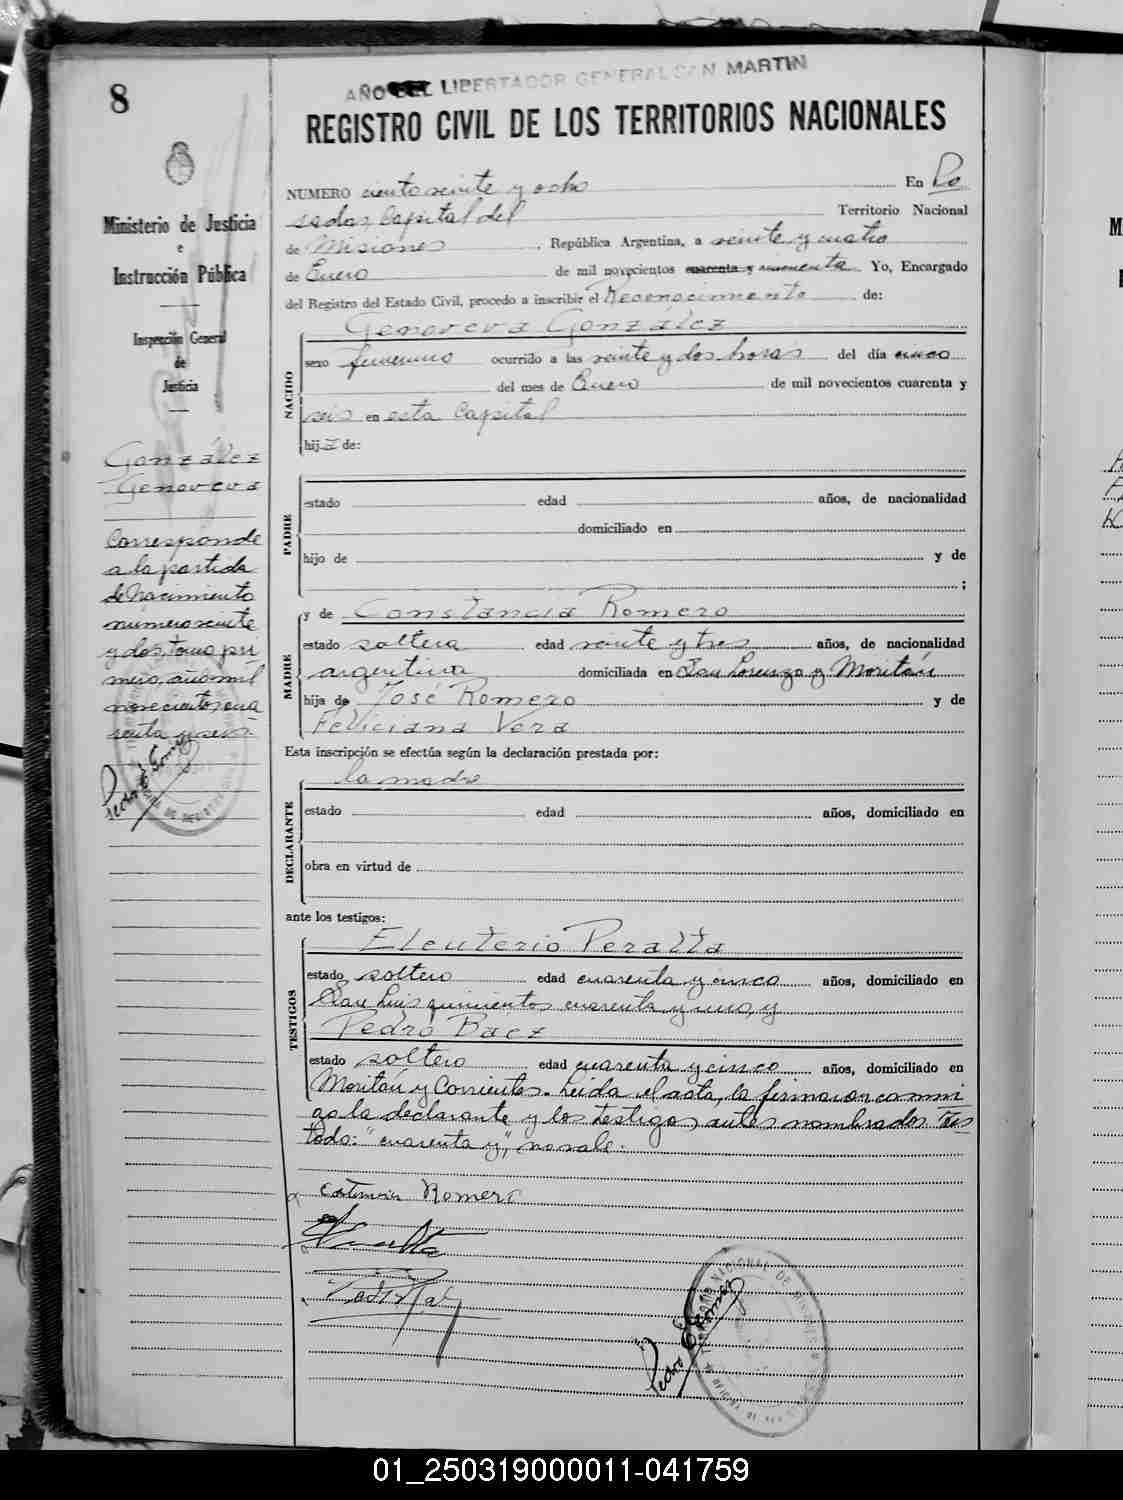 8
AÑO DEL LIBERTADOR GENERAL SAN MARTIN
REGISTRO CIVIL DE LOS TERRITORIOS NACIONALES
Ministerio de Justicia
e
Instrucción Pública
Inspección General
de
Justicia
González
Genoveva
Corresponde
a la partida
de nacimiento
número veinte
y dos, tomo pri
mero, año mil
novecientos cua
renta y seis.
Pedro E Gomez
NUMERO ciento veinte y ocho En Po
sadas, Capital del Territorio Nacional
de Misiones, República Argentina, a veinte y cuatro
de Enero de mil novecientos cuarenta y cincuenta Yo, Encargado
del Registro del Estado Civil, procedo a inscribir el Reconocimiento de:
Genoveva González
NACIDO
sexo femenino ocurrido a las veinte y dos horas del día cinco
del mes de Enero de mil novecientos cuarenta y
seis en esta Capital
hija de:
PADRE
estado edad años, de nacionalidad
domiciliado en
hijo de y de
;
MADRE
y de Constancia Romero
estado soltera edad veinte y tres años, de nacionalidad
argentina domiciliada en San Lorenzo y Moritán
hija de José Romero y de
Feliciana Vera
Esta inscripción se efectúa según la declaración prestada por:
la madre
DECLARANTE
estado edad años, domiciliado en
obra en virtud de
ante los testigos:
TESTIGOS
Eleuterio Peralta
estado soltero edad cuarenta y cinco años, domiciliado en
San Luis quinientos cuarenta y uno, y
Pedro Baez
estado soltero edad cuarenta y cinco años, domiciliado en
Moritán y Corrientes. Leida el acta, la firmaron conmi
go la declarante y los testigos antes nombrados Tes
tado: "cuarenta y", no vale.
Romero
Pedro E Gomez
01_250319000011-041759